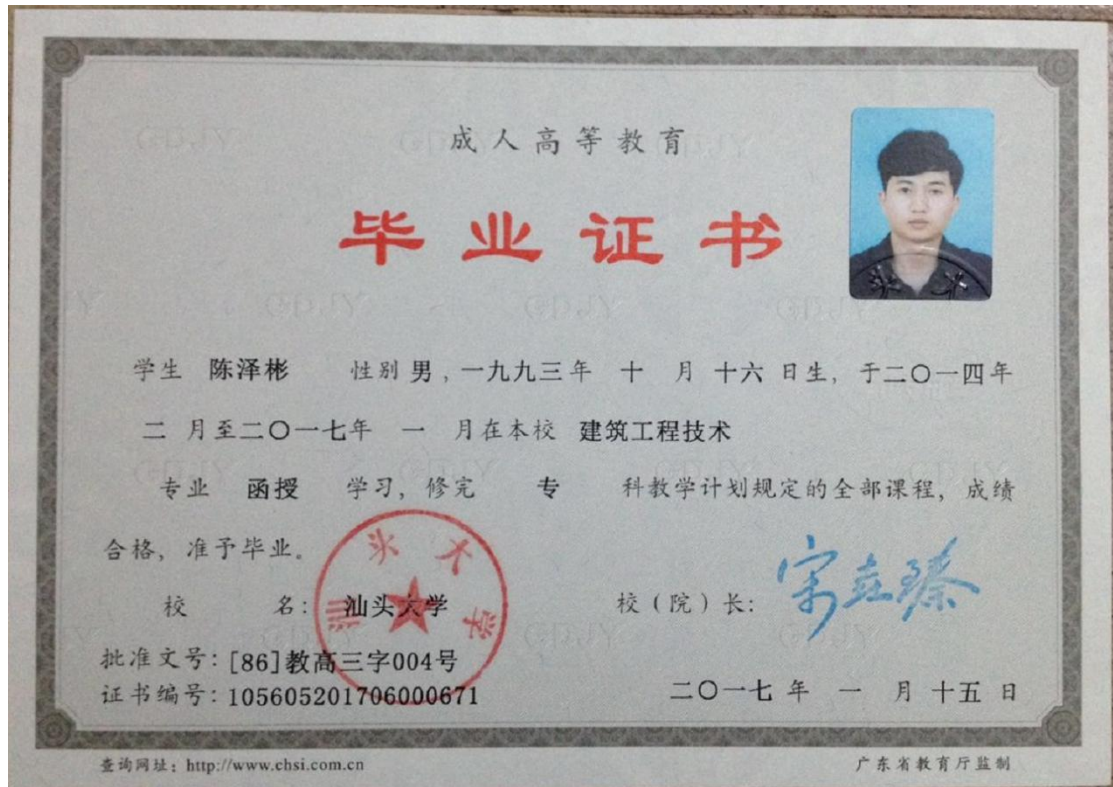 成人高等教育
毕业证书
学生 陈泽彬 性别 男，一九九三年 十 月 十六 日生，于二〇一四年
二 月至二〇一七年 一 月在本校 建筑工程技术
专业 函授 学习，修完 专 科教学计划规定的全部课程，成绩
合格，准予毕业。
校 名：汕头大学 校（院）长：
汕头大学
批准文号：[86]教高三字004号
证书编号：105605201706000671 二〇一七 年 一 月 十五 日
查询网址：http://www.chsi.com.cn 广东省教育厅监制